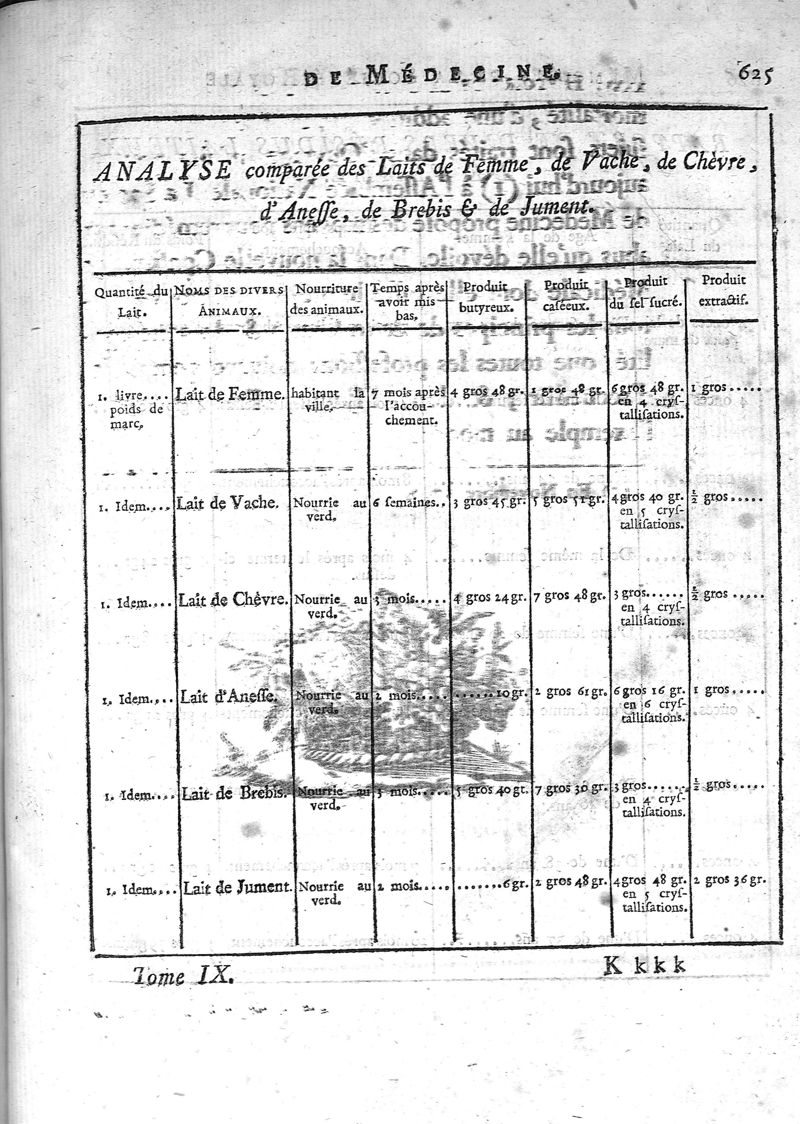 DE MÉDECINE. 625
ANALYSE comparée des Laits de Femme, de Vache, de Chèvre,
d'Aneſſe, de Brebis & de Jument.
Quantité du Lait. | NOMS DES DIVERS ANIMAUX. | Nourriture des animaux. | Temps après avoir mis bas, | Produit butyreux. | Produit caſéeux. | Produit du ſel ſucré. | Produit extractif.
1. livre.... | Lait de Femme. | habitant la | 7 mois après | 4 gros 48 gr. | 1 gros 48 gr. | 6 gros 48 gr. | 1 gros.....
poids de | ville. | l'accou- | en 4 cryſ-
marc. | chement. | talliſations.
1. Idem.... | Lait de Vache. | Nourrie au | 6 ſemaines.. | 3 gros 45 gr. | 5 gros 51 gr. | 4 gros 40 gr. | ½ gros.....
verd. | en 5 cryſ-
talliſations.
1. Idem.... | Lait de Chêvre. | Nourrie au | 3 mois..... | 4 gros 24 gr. | 7 gros 48 gr. | 3 gros...... | ½ gros .....
verd. | en 4 cryſ-
talliſations.
1. Idem.... | Lait d'Aneſſe. | Nourrie au | 2 mois..... | ......10 gr. | 2 gros 61 gr. | 6 gros 16 gr. | 1 gros.....
verd. | en 6 cryſ-
talliſations.
1. Idem.... | Lait de Brebis. | Nourrie au | 3 mois..... | 5 gros 40 gr. | 7 gros 30 gr. | 3 gros....... | ½ gros.....
verd. | en 4 cryſ-
talliſations.
1. Idem.... | Lait de Jument. | Nourrie au | 2 mois..... | .......6 gr. | 2 gros 48 gr. | 4 gros 48 gr. | 2 gros 36 gr.
verd. | en 5 cryſ-
talliſations.
Tome IX. K k k k